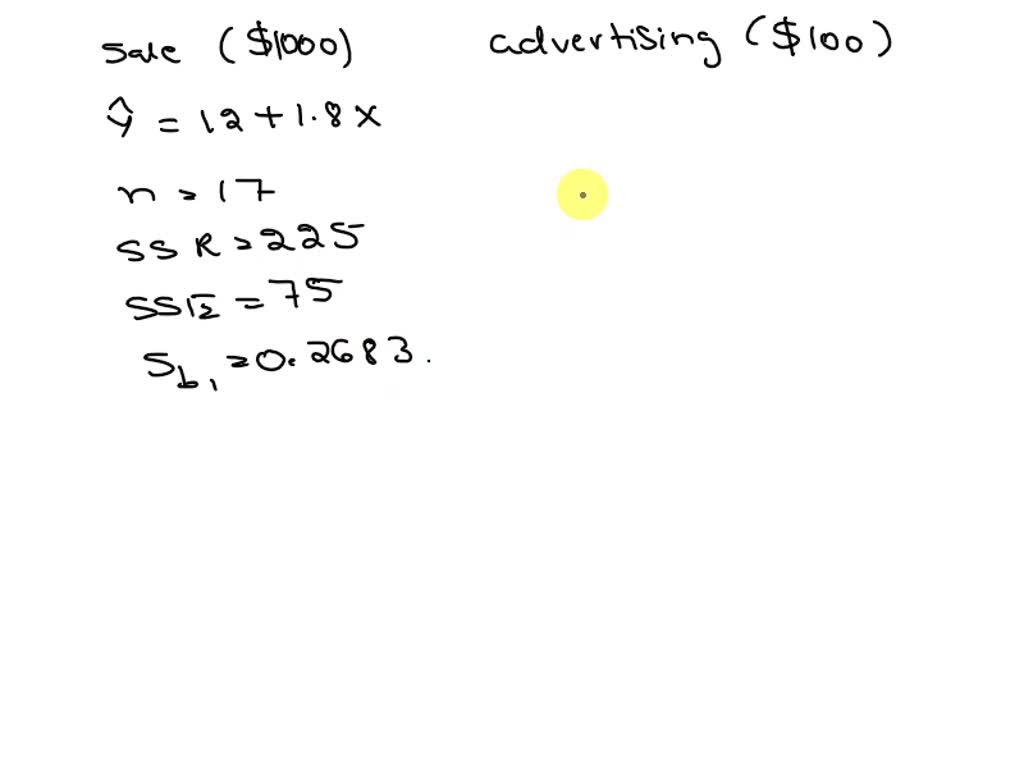 Sale ($1000) advertising ($100)
ŷ = 12 + 1.8 x
n = 17
SSR = 225
SSE = 75
Sb1 = 0.2683.